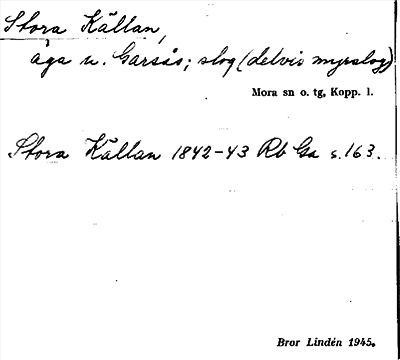 Stora Källan,
äga u. Garsås; slog (delvis myrslog)
Mora sn o. tg, Kopp. l.
Stora Källan 1842-43 Rb Ga s. 163.
Bror Lindén 1945.